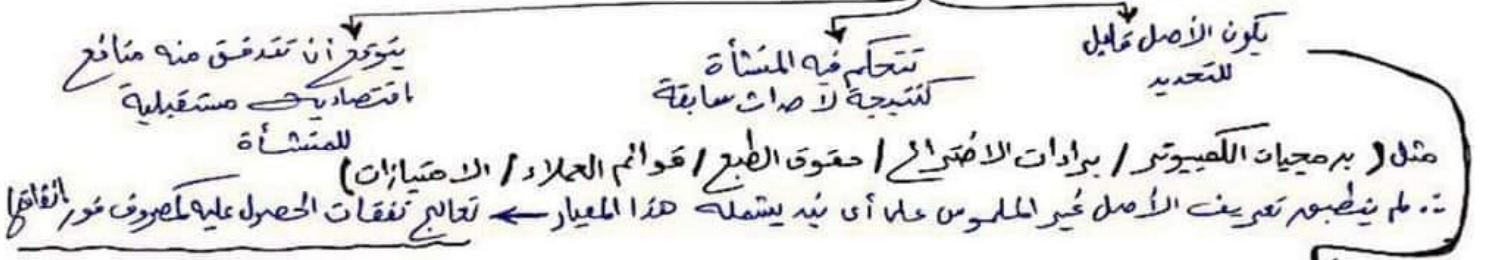 يكون الأصل قابل
للتحديد
تتحكم فيه المنشأة
كنتيجة لأحداث سابقة
يتوقع أن تتدفق منه منافع
اقتصادية مستقبلية
للمنشأة
مثل ( برمجيات الكمبيوتر / براءات الاختراع / حقوق الطبع / قوائم العملاء / الامتيازات )
∵ لم ينطبق تعريف الأصل غير الملموس على أى بند يشمله هذا المعيار ← تعالج نفقات الحصول عليه كمصروف فور انفاقها